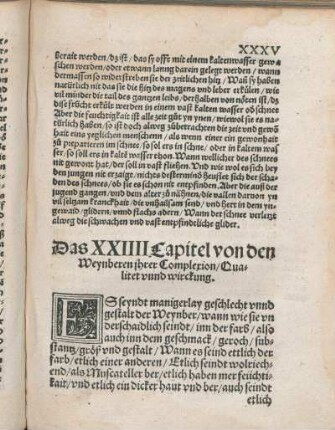 XXXV
berait werden / dz ist / das sy offt mit einem kalten wasser gewa-
schen werden / oder etwann lanng darein gelegt werden / wann
dermassen so widerstreben sie der zeitlichen hitz / Wañ sy haben
natürlich nit das sie die hitz des magens und leber erkülen / wie
vil minder die tail des gantzen leibs / derhalben von nöten ist / dz
dise frücht erkült werden in einem vast kalten wasser ob schnee
Aber die feuchtigkait ist alle zeit gůt yn ynen / wiewol sie es na-
türlich haben / so ist doch alweg zů betrachten die zeit und gewõ
hait eins yeglichen menschenn / als wenn einer ein gewonhait
zů preparieren im schnee / so sol ers in schne / oder in kaltem was
ser / so soll ers in kaltẽ wasser thon. Wann wellicher des schnees
nit gewont hat / der soll in vast fliehen. Und wie wol es sich bey
den jungen nit erzaigt / nichts destermindr heufft sich der scha-
den des schnees / ob sie es schon nit empfinden. Aber die auß der
jugendt gangen / und dem alter zů nähnen / die vallen darvon yn
vil selzam kranckhait / die unhailsam sind / und herr in dem yn-
gewaid / glidern / unnd flachs adern / Wann der schnee verletzt
alweg die schwachen und vast empfindtliche glider.
Das XXIIII Capitel von den
Weynberen jhrer Complexion / Qua-
litet unnd wirckung.
ES seyndt manigerlay geschlecht vnnd
gestalt der Weynber / wann wie sie vn
derschaidlich seindt / inn der farb / also
auch inn dem geschmack / geroch / sub-
stantz / gröss vnd gestalt / Wann es seind ettlich der
farb / etlich einer anderen / Etlich seindt wolriech-
end / als Muscateller ber / etlich haben mer feichti-
kait / vnd etlich ein dicker haut vnd ber / auch seindt
etlich